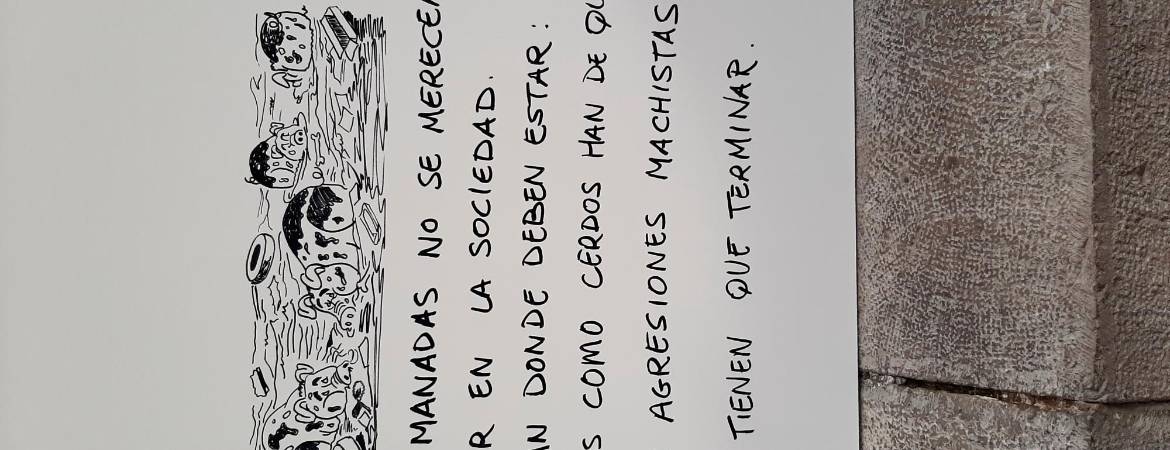 MANADAS NO SE MERECE
R EN LA SOCIEDAD.
N DONDE DEBEN ESTAR:
S COMO CERDOS HAN DE
AGRESIONES MACHISTAS
TIENEN QUE TERMINAR.